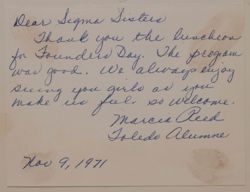 Dear Sigma Sisters
Thank you the luncheon
for Founders Day. The program
was good. We always enjoy
seeing you girls as you
make us feel so welcome.
Marcia Reed
Toledo Alumne
Nov 9, 1971